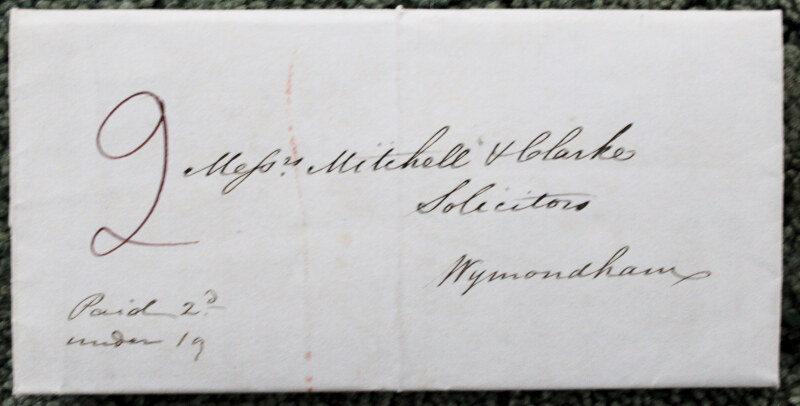 2
Messrs. Mitchell & Clarke
Solicitors
Wymondham
Paid 2d
under 19